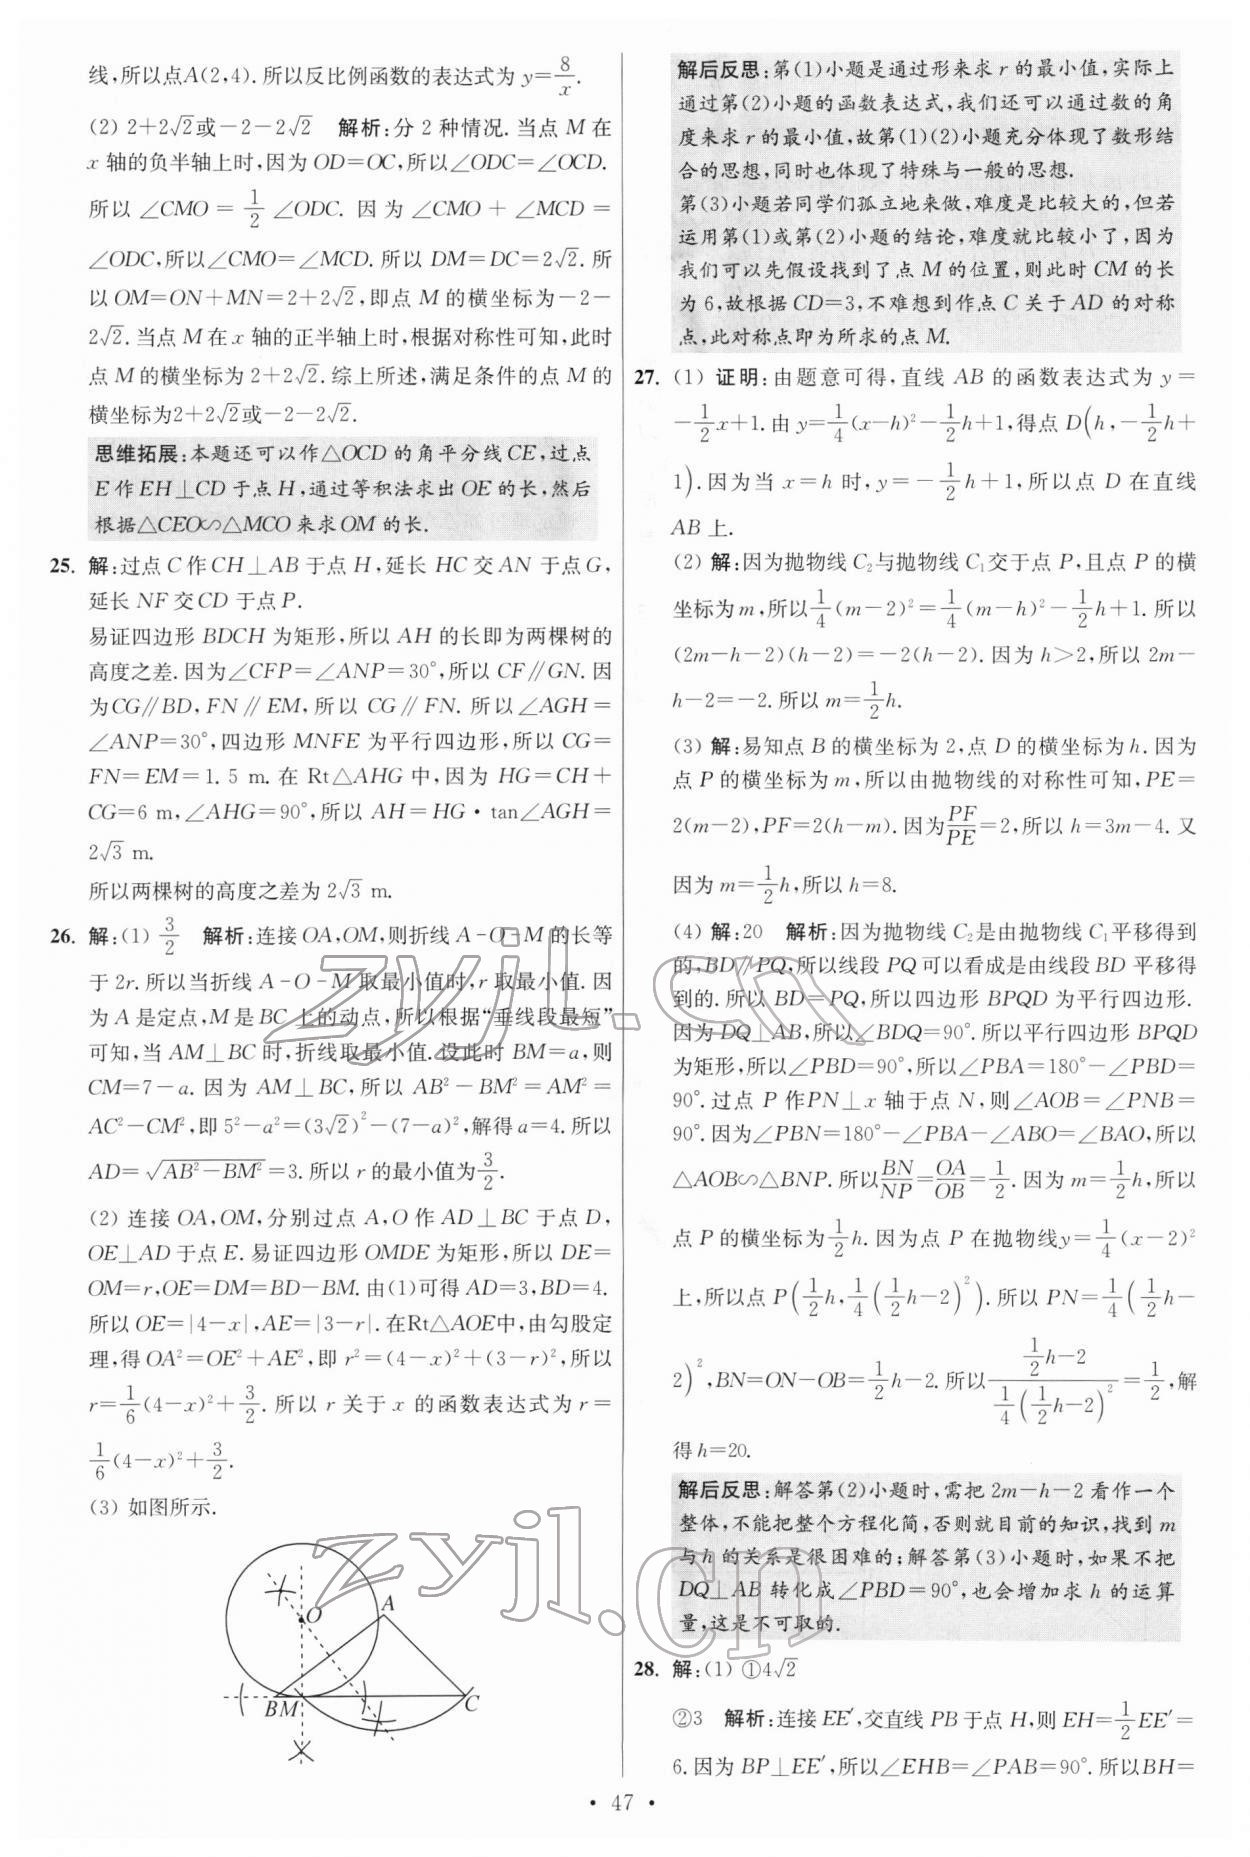 线,所以点A(2,4).所以反比例函数的表达式为 y=8/x.
(2) 2+2√2或-2-2√2 解析:分 2 种情况.当点 M 在
x 轴的负半轴上时,因为 OD=OC,所以∠ODC=∠OCD.
所以 ∠CMO = 1/2 ∠ODC. 因为 ∠CMO + ∠MCD =
∠ODC,所以∠CMO=∠MCD.所以 DM=DC=2√2.所
以 OM=ON+MN=2+2√2,即点 M 的横坐标为-2-
2√2.当点 M 在 x 轴的正半轴上时,根据对称性可知,此时
点 M 的横坐标为 2+2√2.综上所述,满足条件的点 M 的
横坐标为2+2√2或-2-2√2.
思维拓展:本题还可以作△OCD 的角平分线 CE,过点
E 作 EH⊥CD 于点 H,通过等积法求出 OE 的长,然后
根据△CEO∽△MCO 来求 OM 的长.
25. 解:过点 C 作 CH⊥AB 于点 H,延长 HC 交 AN 于点 G,
延长 NF 交 CD 于点 P.
易证四边形 BDCH 为矩形,所以 AH 的长即为两棵树的
高度之差.因为∠CFP=∠ANP=30°,所以 CF∥GN.因
为CG∥BD,FN∥EM,所以 CG∥FN.所以∠AGH=
∠ANP=30°,四边形 MNFE 为平行四边形,所以 CG=
FN=EM=1.5 m.在 Rt△AHG 中,因为 HG=CH+
CG=6 m,∠AHG=90°,所以 AH=HG·tan∠AGH=
2√3 m.
所以两棵树的高度之差为 2√3 m.
26. 解:(1) 3/2 解析:连接 OA,OM,则折线 A-O-M 的长等
于 2r.所以当折线 A-O-M 取最小值时,r 取最小值.因
为 A 是定点,M 是 BC 上的动点,所以根据“垂线段最短”
可知,当 AM⊥BC 时,折线取最小值.设此时 BM=a,则
CM=7-a.因为 AM⊥BC,所以 AB²-BM²=AM²=
AC²-CM²,即 5²-a²=(3√2)²-(7-a)²,解得 a=4.所以
AD=√(AB²-BM²)=3.所以 r 的最小值为3/2.
(2) 连接 OA,OM,分别过点 A,O 作 AD⊥BC 于点 D,
OE⊥AD 于点 E.易证四边形 OMDE 为矩形,所以 DE=
OM=r,OE=DM=BD-BM.由(1)可得 AD=3,BD=4.
所以 OE=|4-x|,AE=|3-r|.在Rt△AOE中,由勾股定
理,得 OA²=OE²+AE²,即 r²=(4-x)²+(3-r)²,所以
r=1/6(4-x)²+3/2.所以 r 关于 x 的函数表达式为 r=
1/6(4-x)²+3/2.
(3) 如图所示.
O
A
B M
C
解后反思:第(1)小题是通过形来求 r 的最小值,实际上
通过第(2)小题的函数表达式,我们还可以通过数的角
度来求 r 的最小值,故第(1)(2)小题充分体现了数形结
合的思想,同时也体现了特殊与一般的思想.
第(3)小题若同学们孤立地来做,难度是比较大的,但若
运用第(1)或第(2)小题的结论,难度就比较小了,因为
我们可以先假设找到了点 M 的位置,则此时 CM 的长
为 6,故根据 CD=3,不难想到作点 C 关于 AD 的对称
点,此对称点即为所求的点 M.
27. (1) 证明:由题意可得,直线 AB 的函数表达式为 y=
-1/2x+1.由 y=1/4(x-h)²-1/2h+1,得点 D(h,-1/2h+
1).因为当 x=h 时,y=-1/2h+1,所以点 D 在直线
AB 上.
(2) 解:因为抛物线 C₂与抛物线 C₁交于点 P,且点 P 的横
坐标为 m,所以1/4(m-2)²=1/4(m-h)²-1/2h+1.所以
(2m-h-2)(h-2)=-2(h-2).因为 h>2,所以 2m-
h-2=-2.所以 m=1/2h.
(3) 解:易知点 B 的横坐标为 2,点 D 的横坐标为 h.因为
点 P 的横坐标为 m,所以由抛物线的对称性可知,PE=
2(m-2),PF=2(h-m).因为PF/PE=2,所以 h=3m-4.又
因为 m=1/2h,所以 h=8.
(4) 解:20 解析:因为抛物线 C₂是由抛物线 C₁平移得到
的,BD∥PQ,所以线段 PQ 可以看成是由线段 BD 平移得
到的.所以 BD=PQ,所以四边形 BPQD 为平行四边形.
因为 DQ⊥AB,所以∠BDQ=90°.所以平行四边形 BPQD
为矩形,所以∠PBD=90°,所以∠PBA=180°-∠PBD=
90°.过点 P 作PN⊥x 轴于点 N,则∠AOB=∠PNB=
90°.因为∠PBN=180°-∠PBA-∠ABO=∠BAO,所以
△AOB∽△BNP.所以BN/NP=OA/OB=1/2.因为 m=1/2h,所以
点 P 的横坐标为1/2h.因为点 P 在抛物线y=1/4(x-2)²
上,所以点 P(1/2h,1/4(1/2h-2)²).所以 PN=1/4(1/2h-
2)²,BN=ON-OB=1/2h-2.所以(1/2h-2)/(1/4(1/2h-2)²)=1/2,解
得 h=20.
解后反思:解答第(2)小题时,需把 2m-h-2 看作一个
整体,不能把整个方程化简,否则就目前的知识,找到 m
与 h 的关系是很困难的;解答第(3)小题时,如果不把
DQ⊥AB 转化成∠PBD=90°,也会增加求 h 的运算
量,这是不可取的.
28. 解:(1) ①4√2
②3 解析:连接 EE′,交直线 PB 于点 H,则 EH=1/2EE′=
6.因为 BP⊥EE′,所以∠EHB=∠PAB=90°.所以BH=
· 47 ·
zyjl.cn
zyjl.cn